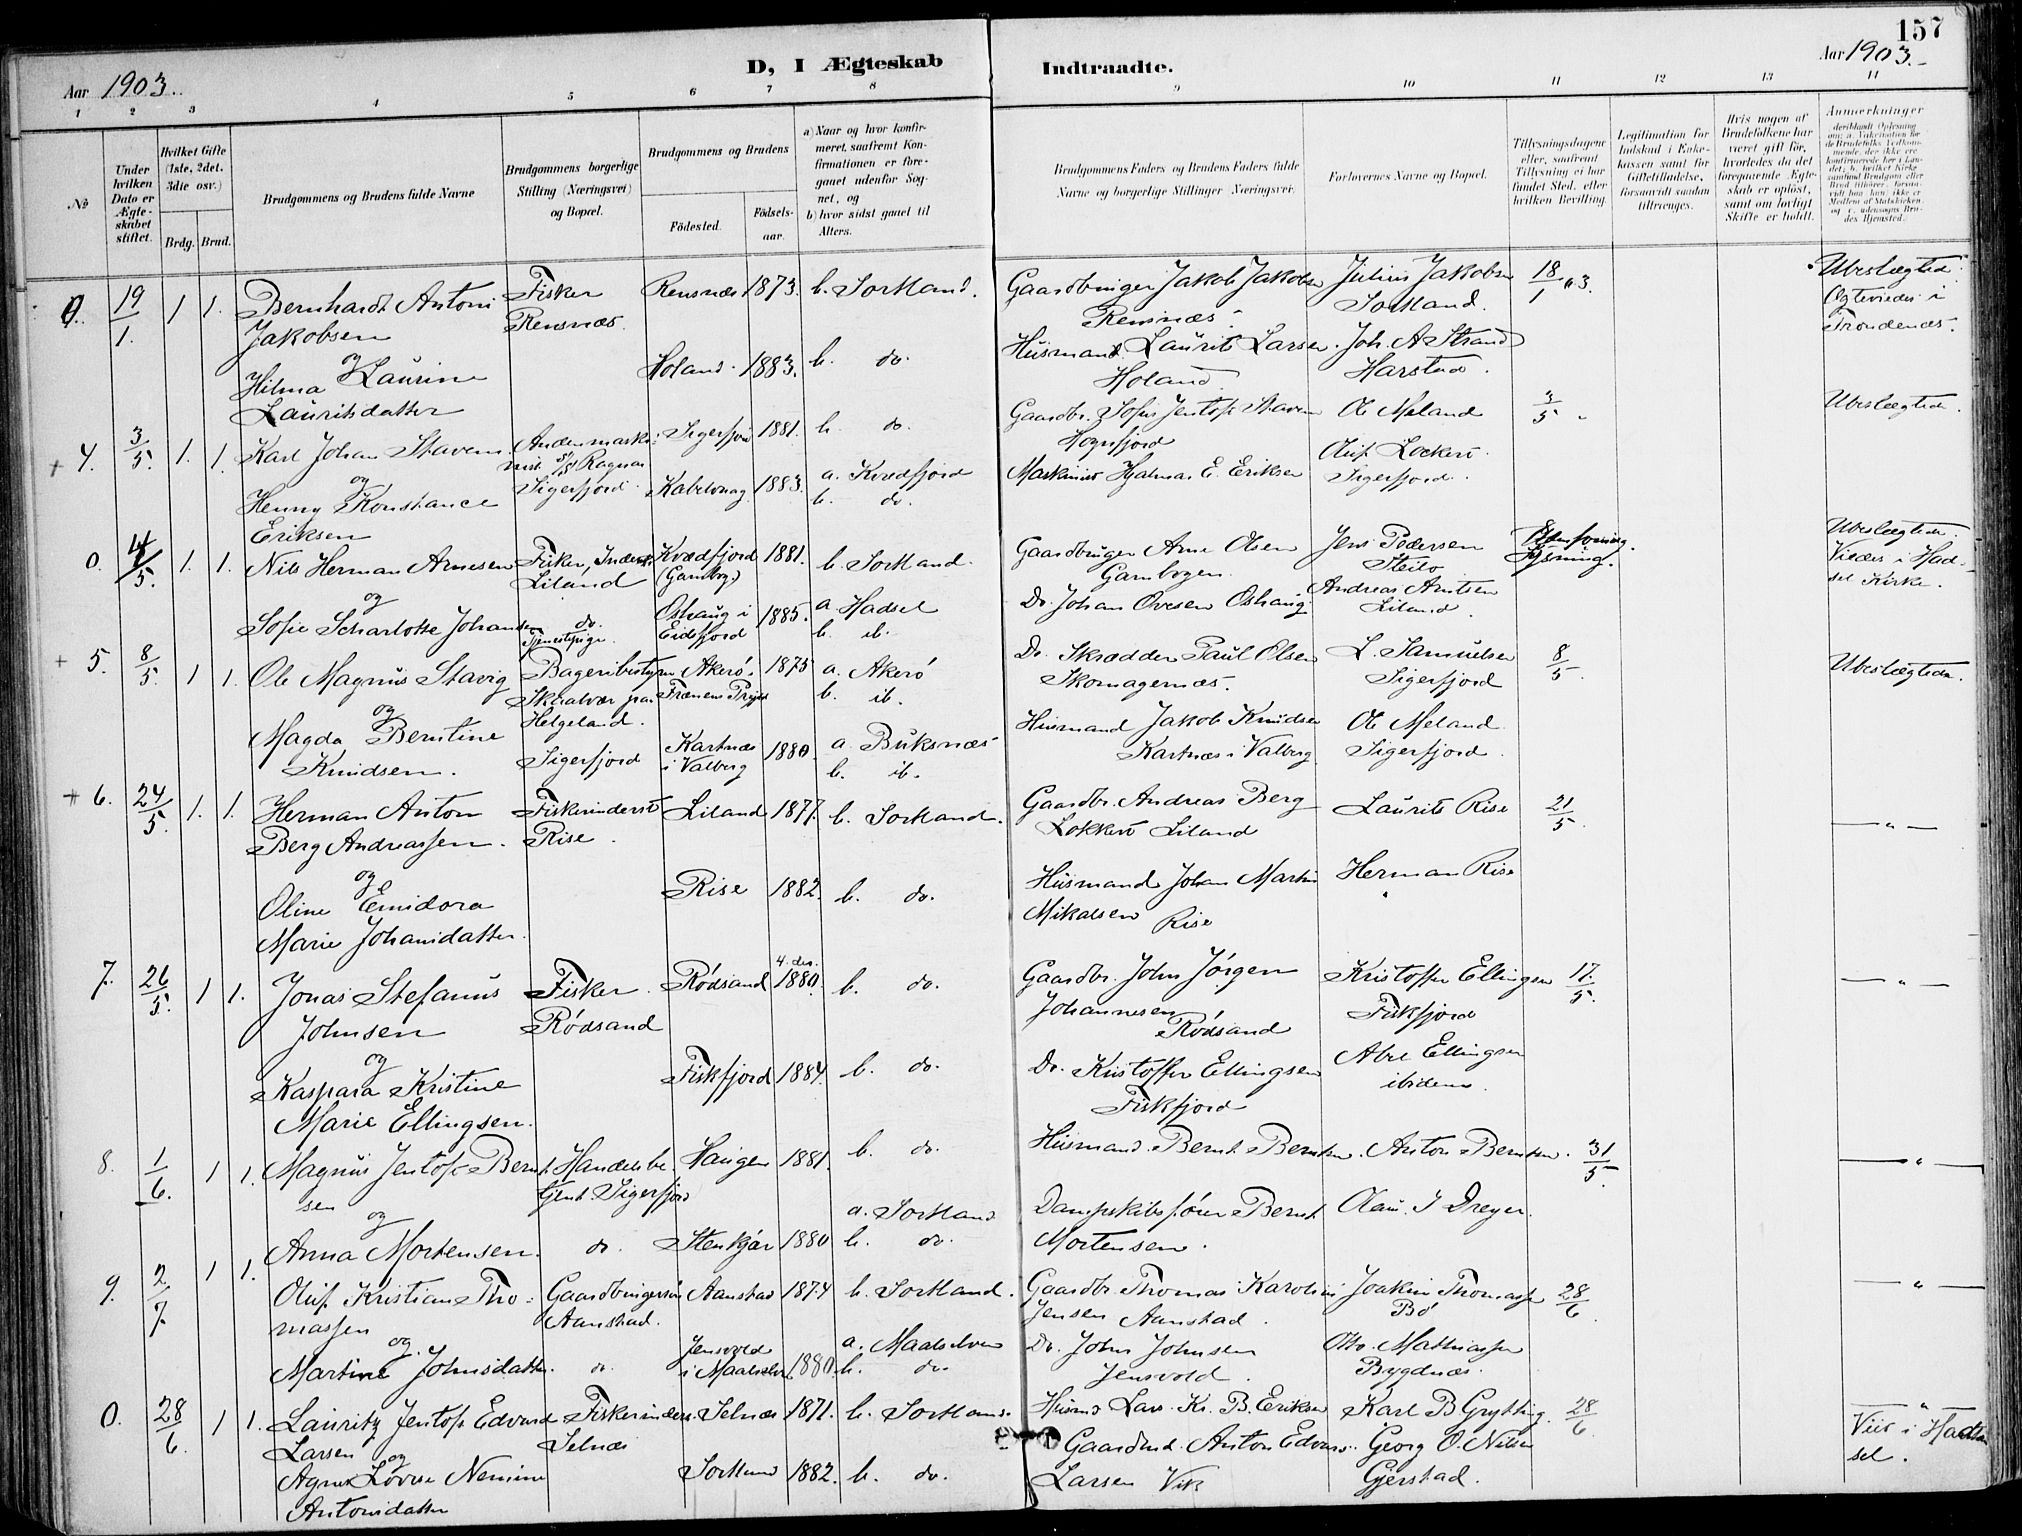 157
Aar 1903.
D, I Ægteskab Indtraadte.
Aar 1903.
1 2 3 4 5 6 7 8 9 10 11 12 13 14
No
Under hvilken Dato er Ægteskabet stiftet.
Hvilket Gifte (1ste, 2det, 3die osv.)
Brdg. Brud.
Brudgommens og Brudens fulde Navne
Brudgommens borgerlige Stilling (Næringsvei) og Bopæl.
Brudgommens og Brudens
Fødested.
Fødselsaar.
a) Naar og hvor konfirmeret, saafremt Konfirmationen er foregaaet udenfor Sognet, og
b) hvor sidst gaaet til Alters.
Brudgommens Faders og Brudens Faders fulde Navne og borgerlige Stillinger Næringsvei.
Forlovernes Navne og Bopæl.
Tillysningsdagene eller, saafremt Tillysning ei har fundet Sted, efter hvilken Bevilling.
Legitimation for Indskud i Enkekassen samt for Giftetilladelse, forsaavidt saadan tiltrænges.
Hvis nogen af Brudefolkene har været gift før, hvorledes da det foregaaende Ægteskab er opløst, samt om lovligt Skifte er holdt.
Anmerkninger
0. 19/1. 1 1. Bernhardt Antoni Fisker Rensnæs 1873. b. Sortland. Gaardbruger Jakob Jakobsen Julius Jakobsen 18/1 03. Ubeslægtede.
Jakobsen Rensnæs. Rensnæs. Sortland. Ægtevies i
og Husmand Laurits Larsen. Joh. A Strand Trondenæs.
Hilma Laurine Holand. 1883. b. do. Holand. Harstad.
Lauritsdatter
+ 4. 3/5. 1. 1. Karl Johan Stavem Sigerfjord 1881. b. do. Gaardbr. Sofus Jentoft Stavem Ole Meland 3/5 Ubeslægtede.
s/s Ragnar Hognfjord
og Sigerfjord. Oluf Lockert.
Henny Konstance Kabelvaag 1883. a. Kvædfjord Maskinist Hjalmar E. Eriksen Sigerfjord.
Eriksen b. do.
0. 4/5. 1. 1. Nils Herman Arnesen Fisker, Inderst Kvædfjord 1881. b. Sortland. Gaardbruger Arne Olsen Jens Pedersen Ubeslægtede.
Liland (Gambog.) Gambogen. Steilo lysning. Viedes i Hadsel Kirke.
og
Sofie Scharlotte Johansen do. Oshaug i 1885. a. Hadsel Do. Johan Ovesen Oshaug Andreas Arntsen
Tjenestpige. Eidsfjord b. ib. Liland.
+ 5. 8/5. 1 1. Ole Magnus Stavig Bageribestyrer Akerø. 1875 a. Akerø Do. Skrædder Paul Olsen L. Samuelsen 8/5. Ubeslægtede.
Skraalvær paa Frænens b. ib. Skomagernæs. Sigerfjord
og Helgeland.
Magda Berntine Sigerfjord Kartnæs 1880. a. Buksnæs Husmand Jakob Knudsen Ole Meland
Knudsen. i Valberg b. ib. Kartnæs i Valberg Sigerfjord.
+ 6. 24/5. 1. 1. Herman Anton Fisker inderst Liland 1877. b. Sortland. Gaardbr. Andreas Berg Laurits Rise 21/5. — " —
Berg Andreassen. Rise. Lokkert Liland
og
Oline Emidora Rise 1882. b. do. Husmand Johan Martin Herman Rise
Marie Johansdatter. Mikalsen Rise
7. 26/5. 1 1. Jonas Stefanus Fisker. Rødsand 4. des. 1880. b. do. Gaardbr. John Jørgen Kristoffer Ellingsen 17/5. — " —
Johnsen Rødsand Johannesen Rødsand Fiskfjord
og
Kaspara Kristine Fiskfjord 1884. b. do. Do. Kristoffer Ellingsen Abel Ellingsen
Marie Ellingsen. Fiskfjord ibidem.
8. 1/6. 1 1. Magnus Jentoft Berntsen Handelsbetjent. Sigerfjord Haugen 1881. b. do. Husmand Bernt Berntsen. Anton Berntsen. 31/5. — " —
og
Anna Mortensen. do. Stenkjær 1880 a. Sortland b. do. Dampskibsfører Bernt Mortensen. Olau. J Dreyer.
9. 2/7. 1 1. Oluf Kristian Thomassen Gaardbrugersøn Aanstad 1874 b. Sortland. Gaardbr. Thomas Karolius Joakim Thomassen 28/6. — " —
Aanstad. Jensen Aanstad. Bø
og. Jensvold a. Maalselven Do. John Johnsen Otto. Mathiassen
Martine Johnsdatter. do. i Maalselv. 1880. b. do. Jensvold. Bygdnæs.
0. 28/6. 1 1. Lauritz Jentoft Edvard Fisker inderst. Selnæs 1871. b. Sortland. Husmd Lars Kr. B. Eriksen Karl B Grytting. 28/6 — " —
Larsen Selnæs Viet i Hadsel.
og Gaardmd. Anton Edvard. Georg O. Nilsen
Agnes Lovise Nemine Sortland 1882. b. do. Larsen Vik Gjerstad.
Antonsdatter